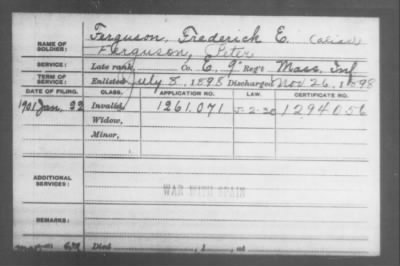 NAME OF SOLDIER: Ferguson, Frederick E. (alias)
Ferguson, Peter
SERVICE: Late rank, Co. E, 9" Reg't Mass. Inf
TERM OF SERVICE: Enlisted July 8, 1898 Discharged Nov 26, 1898
DATE OF FILING. CLASS. APPLICATION NO. LAW. CERTIFICATE NO.
1901 Jan. 22 Invalid, 1261.071 1294056
Widow,
Minor,
ADDITIONAL SERVICES:
WAR WITH SPAIN
REMARKS:
Died , 1 , at